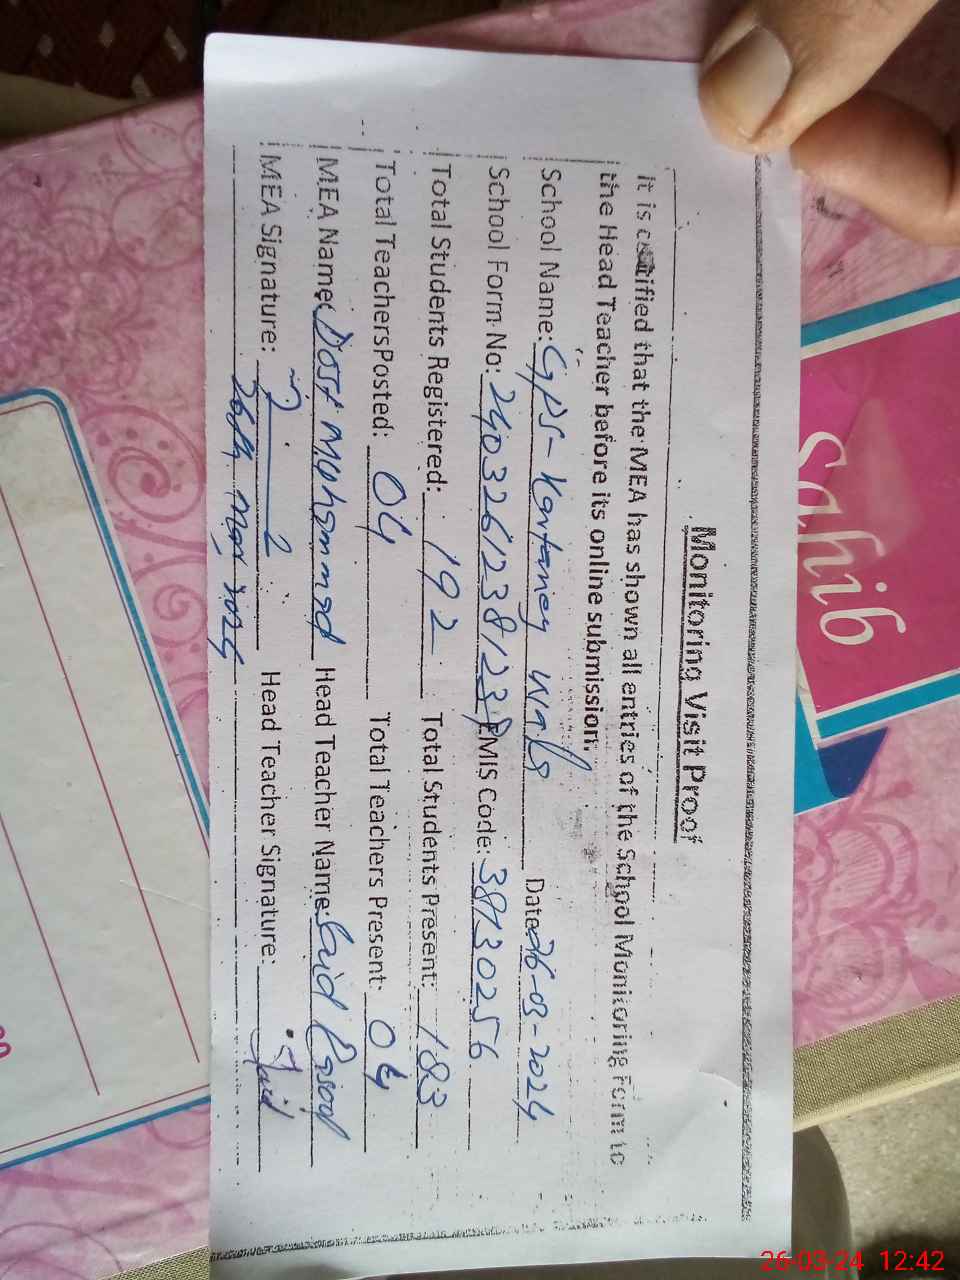 Monitoring Visit Proof
it is certified that the MEA has shown all entries of the School Monitoring Form to
the Head Teacher before its online submission.
School Name: GPS- Date 26-03-2024
School Form No: EMIS Code: 38130256
Total Students Registered: 192 Total Students Present: 183
Total Teachers Posted: 04 Total Teachers Present: 04
MEA Name: Dost Muhammad Head Teacher Name: Said Rasool
MEA Signature: Head Teacher Signature: Said
26th Mar 2024
Sahib
26-03-24 12:42